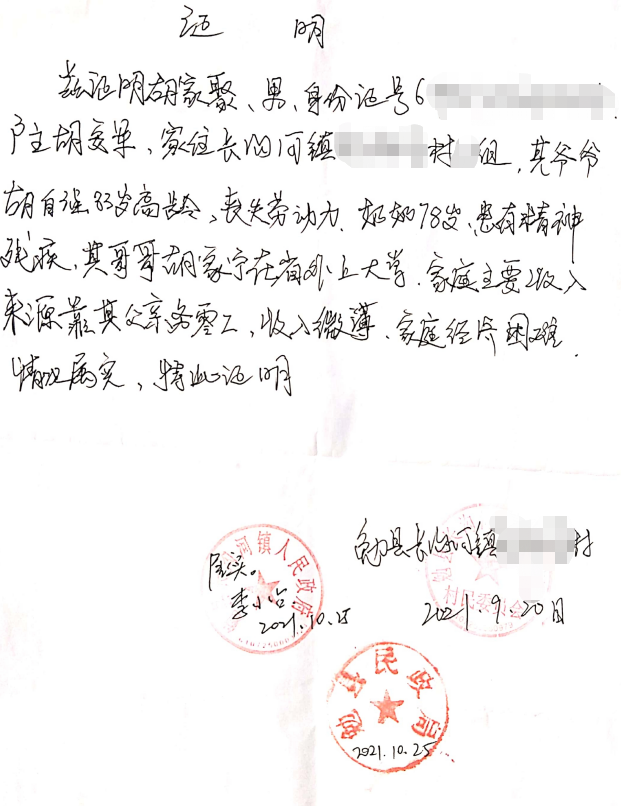 证 明
兹证明胡家聚、男、身份证号6
户主胡安华、家住长沟河镇 村 组，其爷爷
胡自强83岁高龄、丧失劳动力、奶奶78岁、患有精神
残疾、其哥哥胡家宁在省外上大学、家庭主要收入
来源靠其父亲务零工、收入微薄、家庭经济困难、
情况属实，特此证明
勉县长沟河镇 村
2021.9.20日
村民委员会
河镇人民政府
属实。
李小
2021.10.25
勉县民政局
2021.10.25